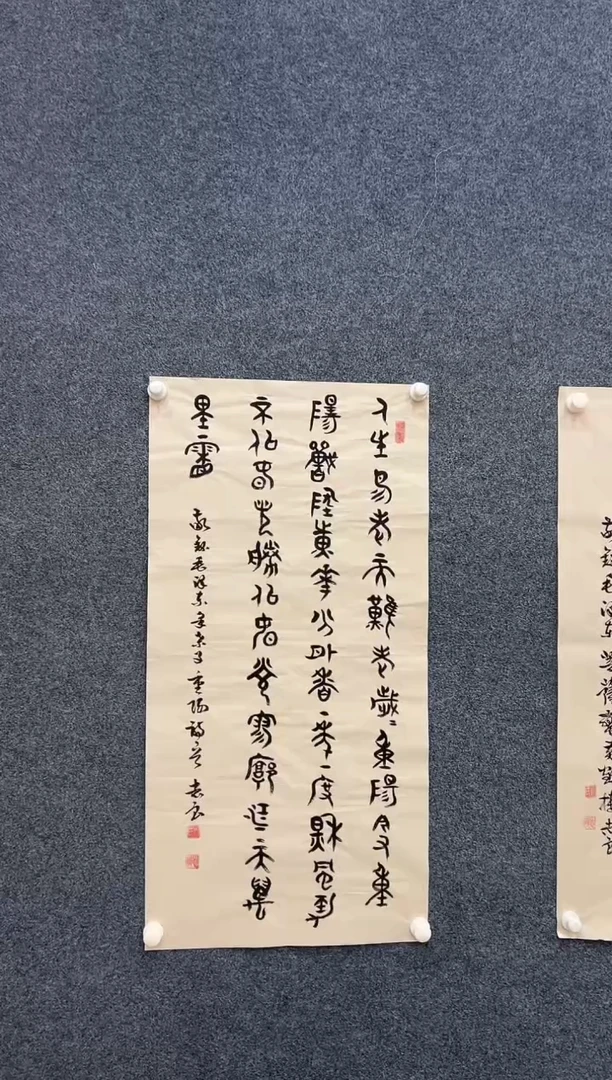 人生易老天難老歲〻重陽今又重
陽戰地黃華分外香一年一度秋風勁
不似春光勝似春光寥廓江天萬
里霜
敬録毛澤東采桑子重陽